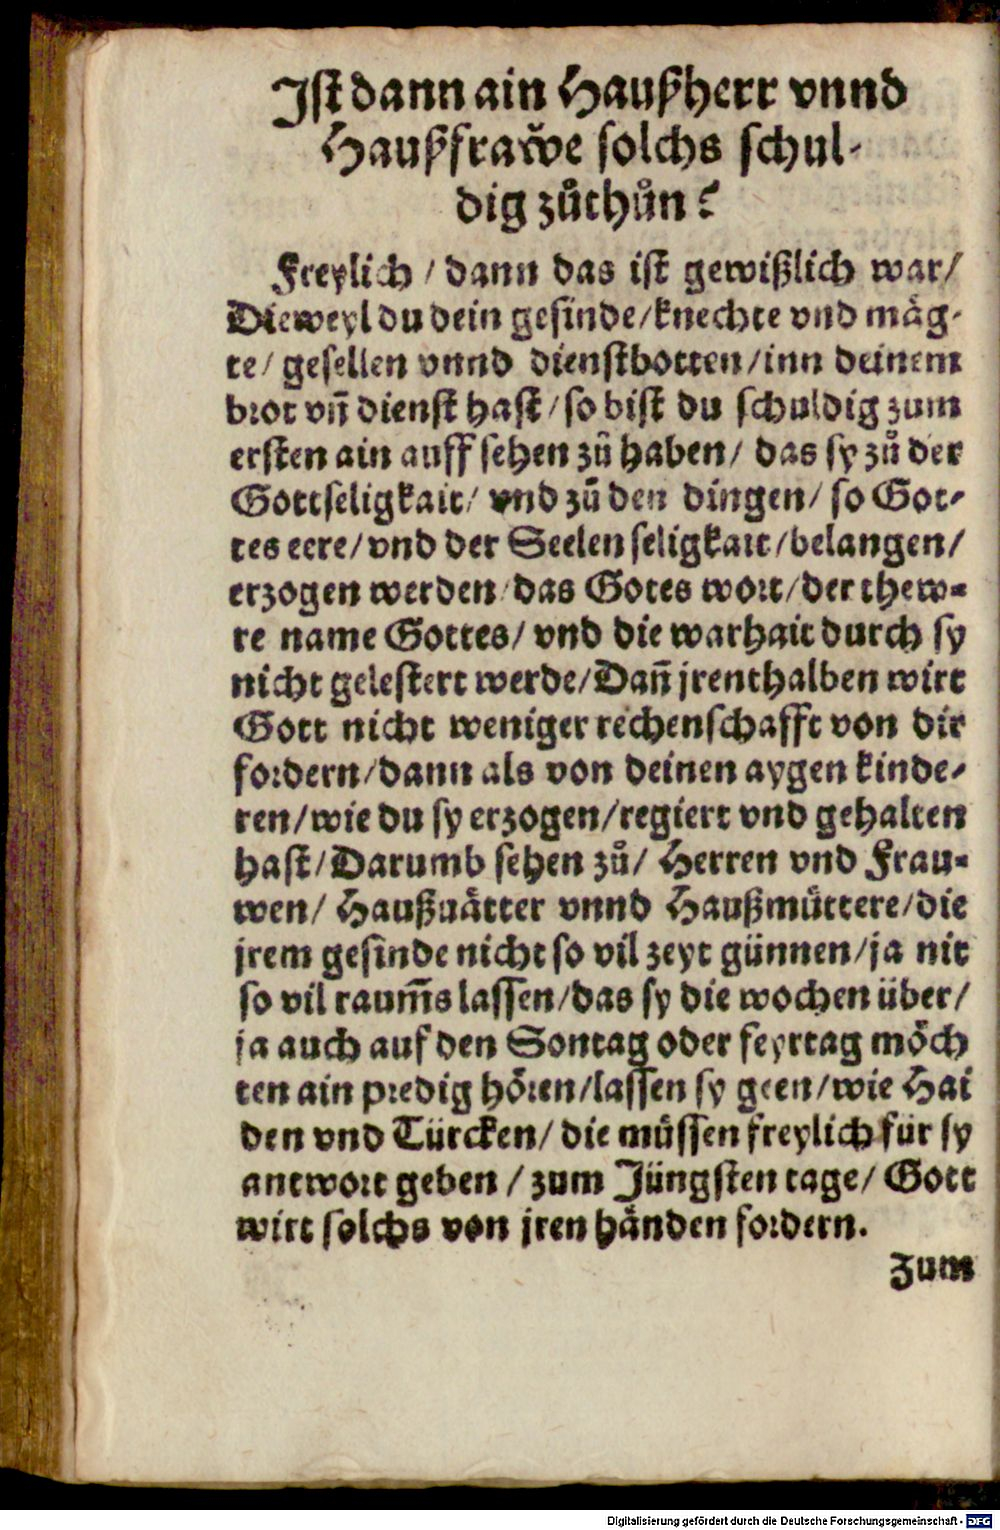 Jst dann ain Haußherr vnnd
Haußfrawe solchs schul-
dig zůthůn?
Freylich / dann das ist gewißlich war/
Dieweyl du dein gesinde/knechte vnd mäg-
te/ gesellen vnnd dienstbotten/inn deinem
brot vñ dienst hast/so bist du schuldig zum
ersten ain auff sehen zů haben/ das sy zů der
Gottseligkait/ vnd zů den dingen/ so Got-
tes eere/vnd der Seelen seligkait/belangen/
erzogen werden/das Gotes wort/der thew-
re name Gottes/ vnd die warhait durch sy
nicht gelestert werde/Dañ jrenthalben wirt
Gott nicht weniger rechenschafft von dir
fordern/dann als von deinen aygen kinde-
ren/wie du sy erzogen/regiert vnd gehalten
hast/Darumb sehen zů/ Herren vnd Frau-
wen/ Haußuätter vnnd Haußmüttere/die
jrem gesinde nicht so vil zeyt günnen/ja nit
so vil raum̃s lassen/das sy die wochen über/
ja auch auf den Sontag oder feyrtag möch
ten ain predig hören/lassen sy geen/wie Hai
den vnd Türcken/ die müssen freylich für sy
antwort geben / zum Jüngsten tage/ Gott
wirt solchs von jren händen fordern.
Zum
Digitalisierung gefördert durch die Deutsche Forschungsgemeinschaft - DFG